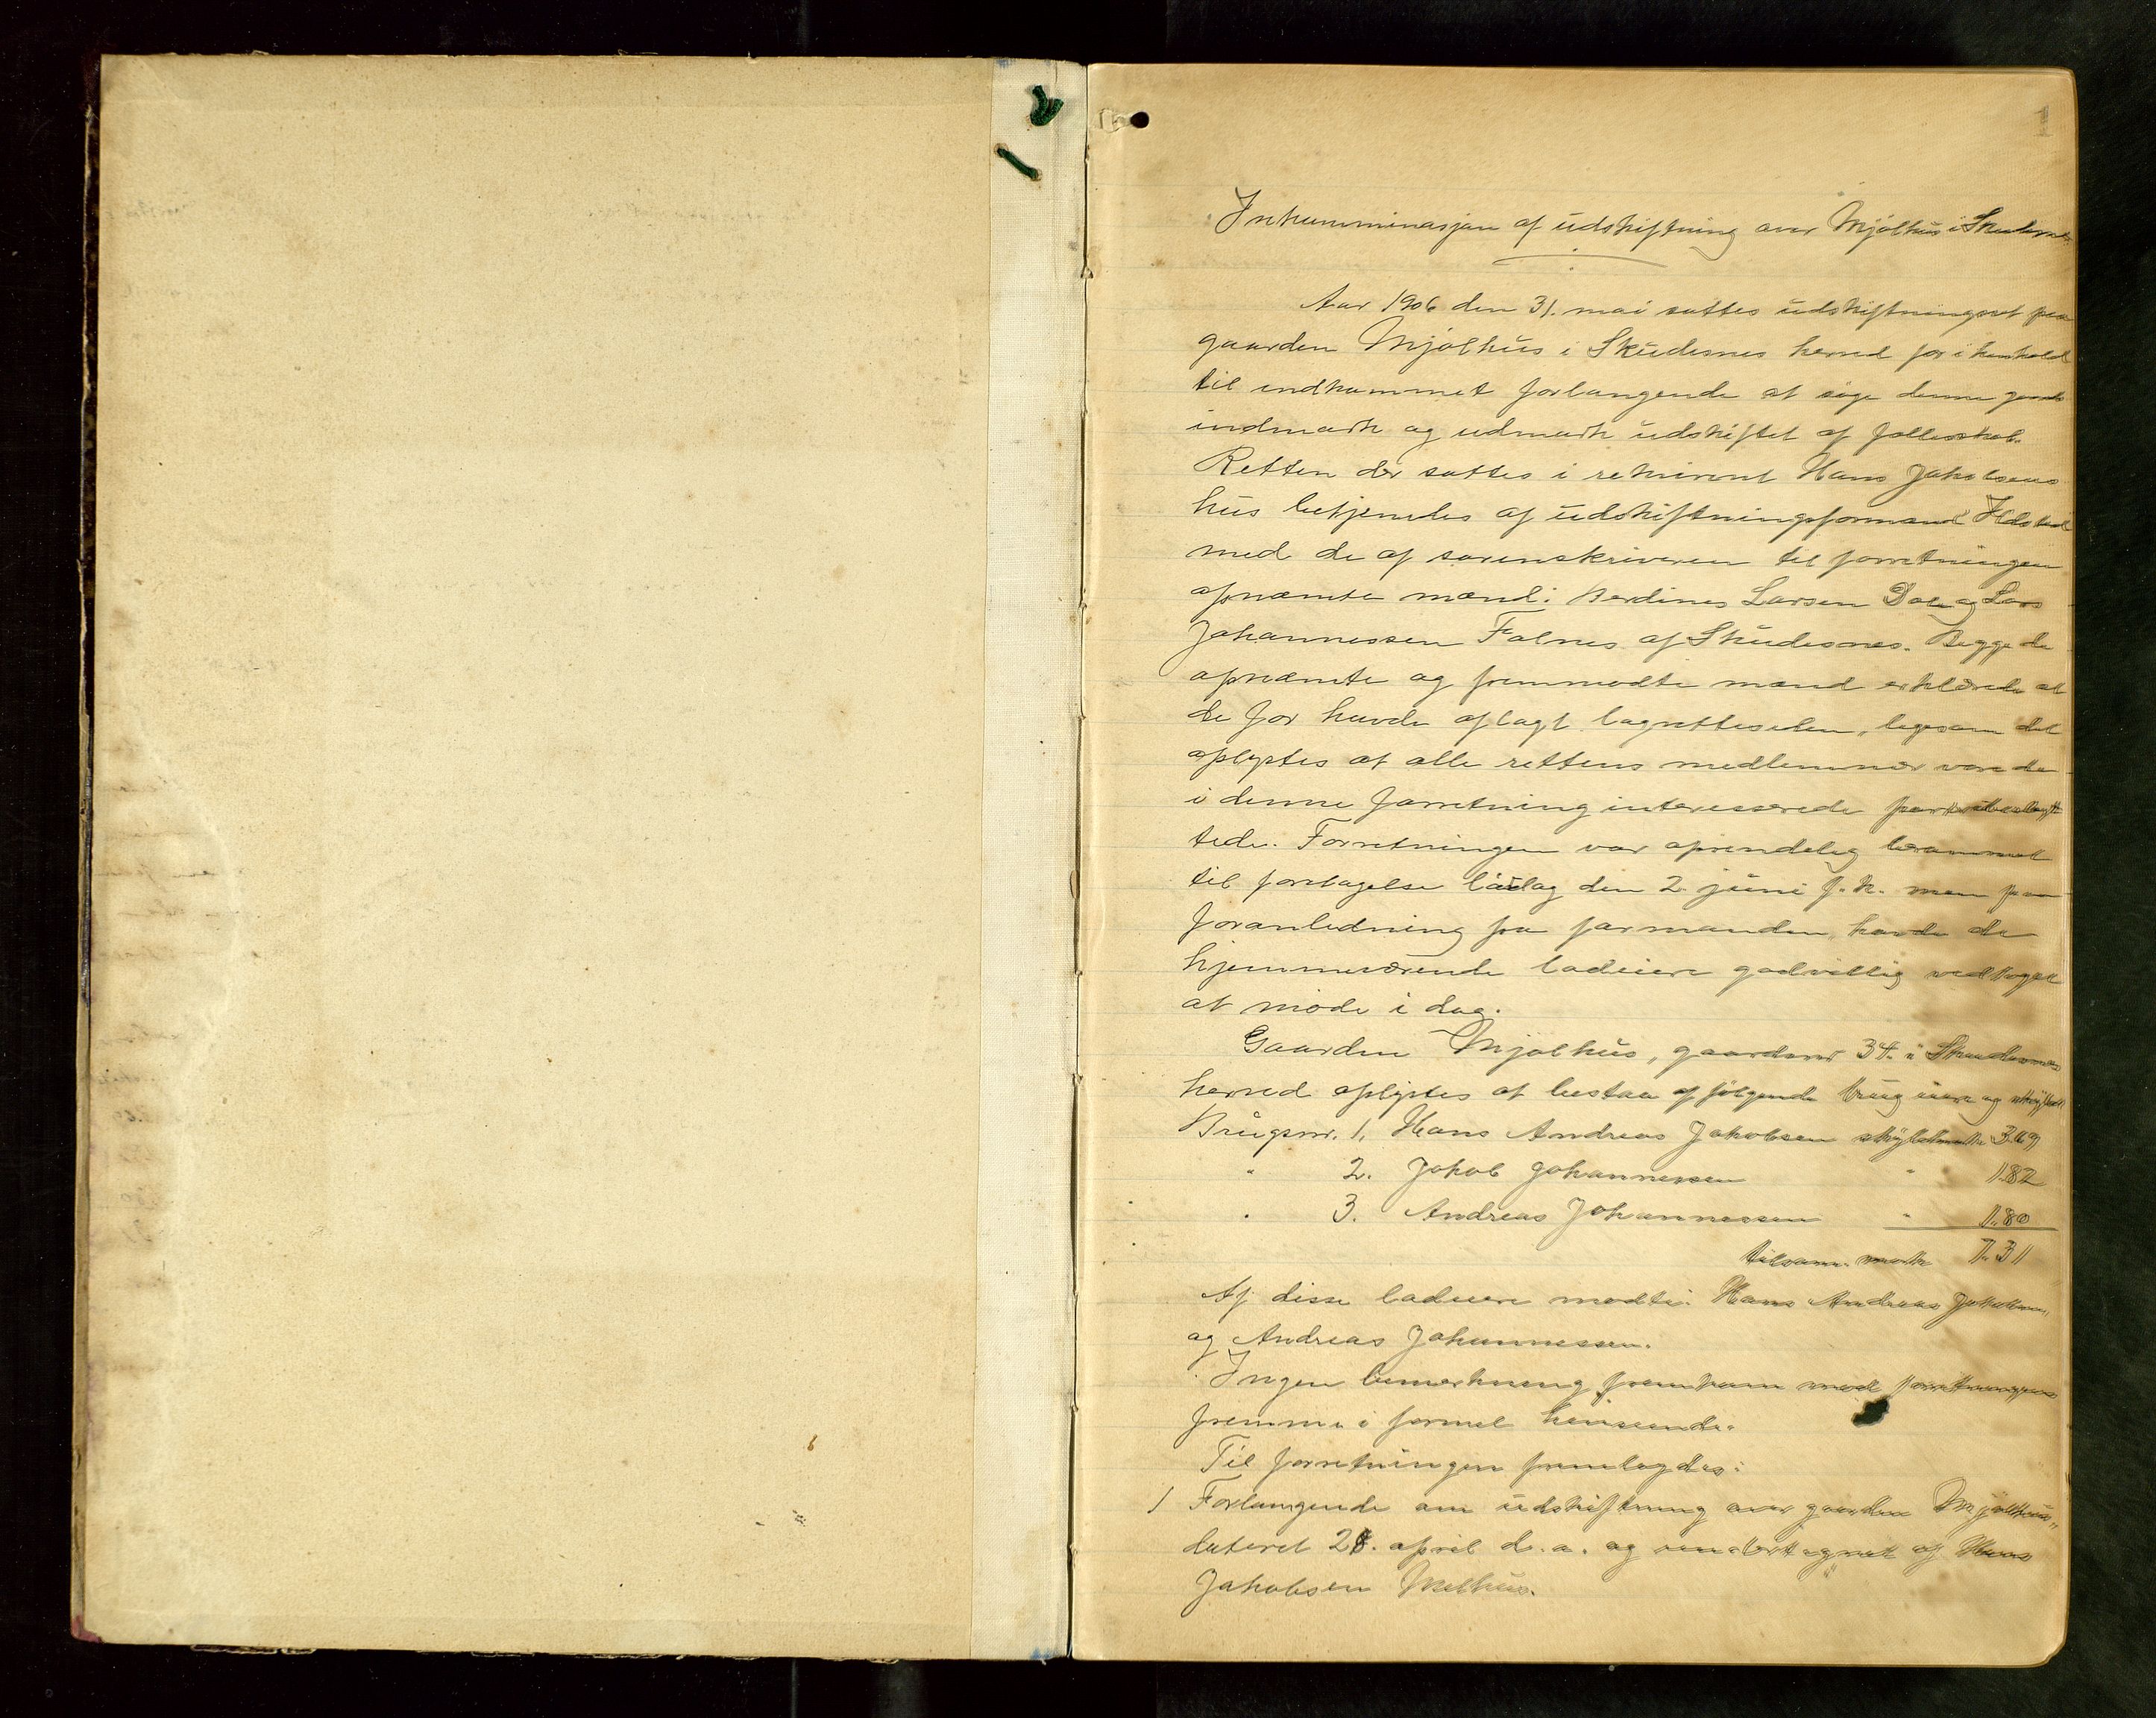 1
Inkumminasjon af udskiftning over Mjølhus i Skudesnes.
Aar 1906 den 31. mai sattes udskiftningsret paa
gaarden Mjølhus i Skudesnes herred for i henhold
til indkommet forlangende at søge denne gaards
indmark og udmark udskiftet af fællesskab.
Retten der sattes i rekvirent Hans Jakobsens
hus betjenedes af udskiftningsformand
med de af sorenskriveren til forretningen
opnævnte mænd: Berdines Larsen Dale og Lars
Johannessen Falnes af Skudesnes. Begge de
opnævnte og fremmødte mænd erklærede at
de før havde aflagt lagretteseden, ligesom det
oplystes at alle rettens medlemmer vare de
i denne forretning interesserede parter ubeslægt
tede. Forretningen var oprindelig berammet
til foretagelse lørdag den 2. juni f.k. men paa
foranledning fra formanden, havde de
hjemmeværende lodeiere godvillig vedtaget
at møde i dag.
Gaarden Mjølhus, gaardsnr 34. i Skudesnes
herred oplystes at bestaa af følgende brug eiere og skyld:
Brugsnr. 1. Hans Andreas Jakobsen skyldmark 3.69
" 2. Jakob Johannessen " 1.82
" 3. Andreas Johannessen " 1.80
tilsam. mark 7.31
Af disse lodeiere mødte: Hans Andreas Jakobsen,
og Andreas Johannessen.
Ingen bemerkning fremkom mod forretningens
fremme i formel henseende.
Til forretningen fremlagdes:
1 Forlangende om udskiftning over gaarden Mjølhus,
dateret 28. april d.a. og undertegnet af Hans
Jakobsen Melhus.